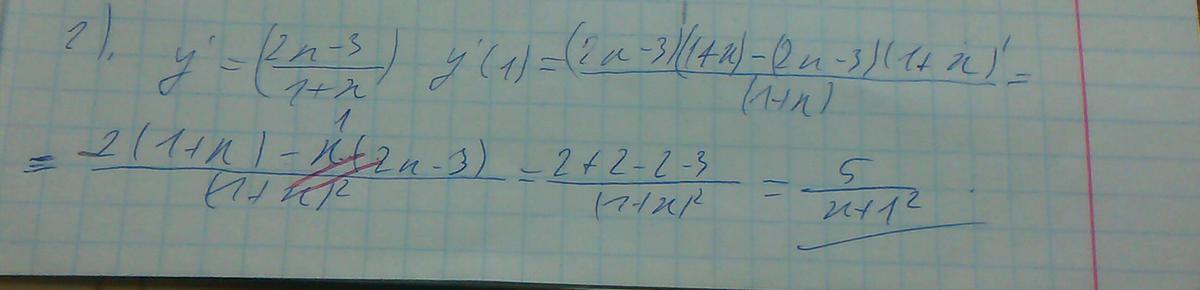 2). y' = (2x-3 / 1+x) y'(1) = (2x-3)(1+x)-(2x-3)(1+x)' / (1+x) =
= 2(1+x) - x 1 (2x-3) / (1+x)² = 2+2-2-3 / (1+x)² = 5 / x+1² .